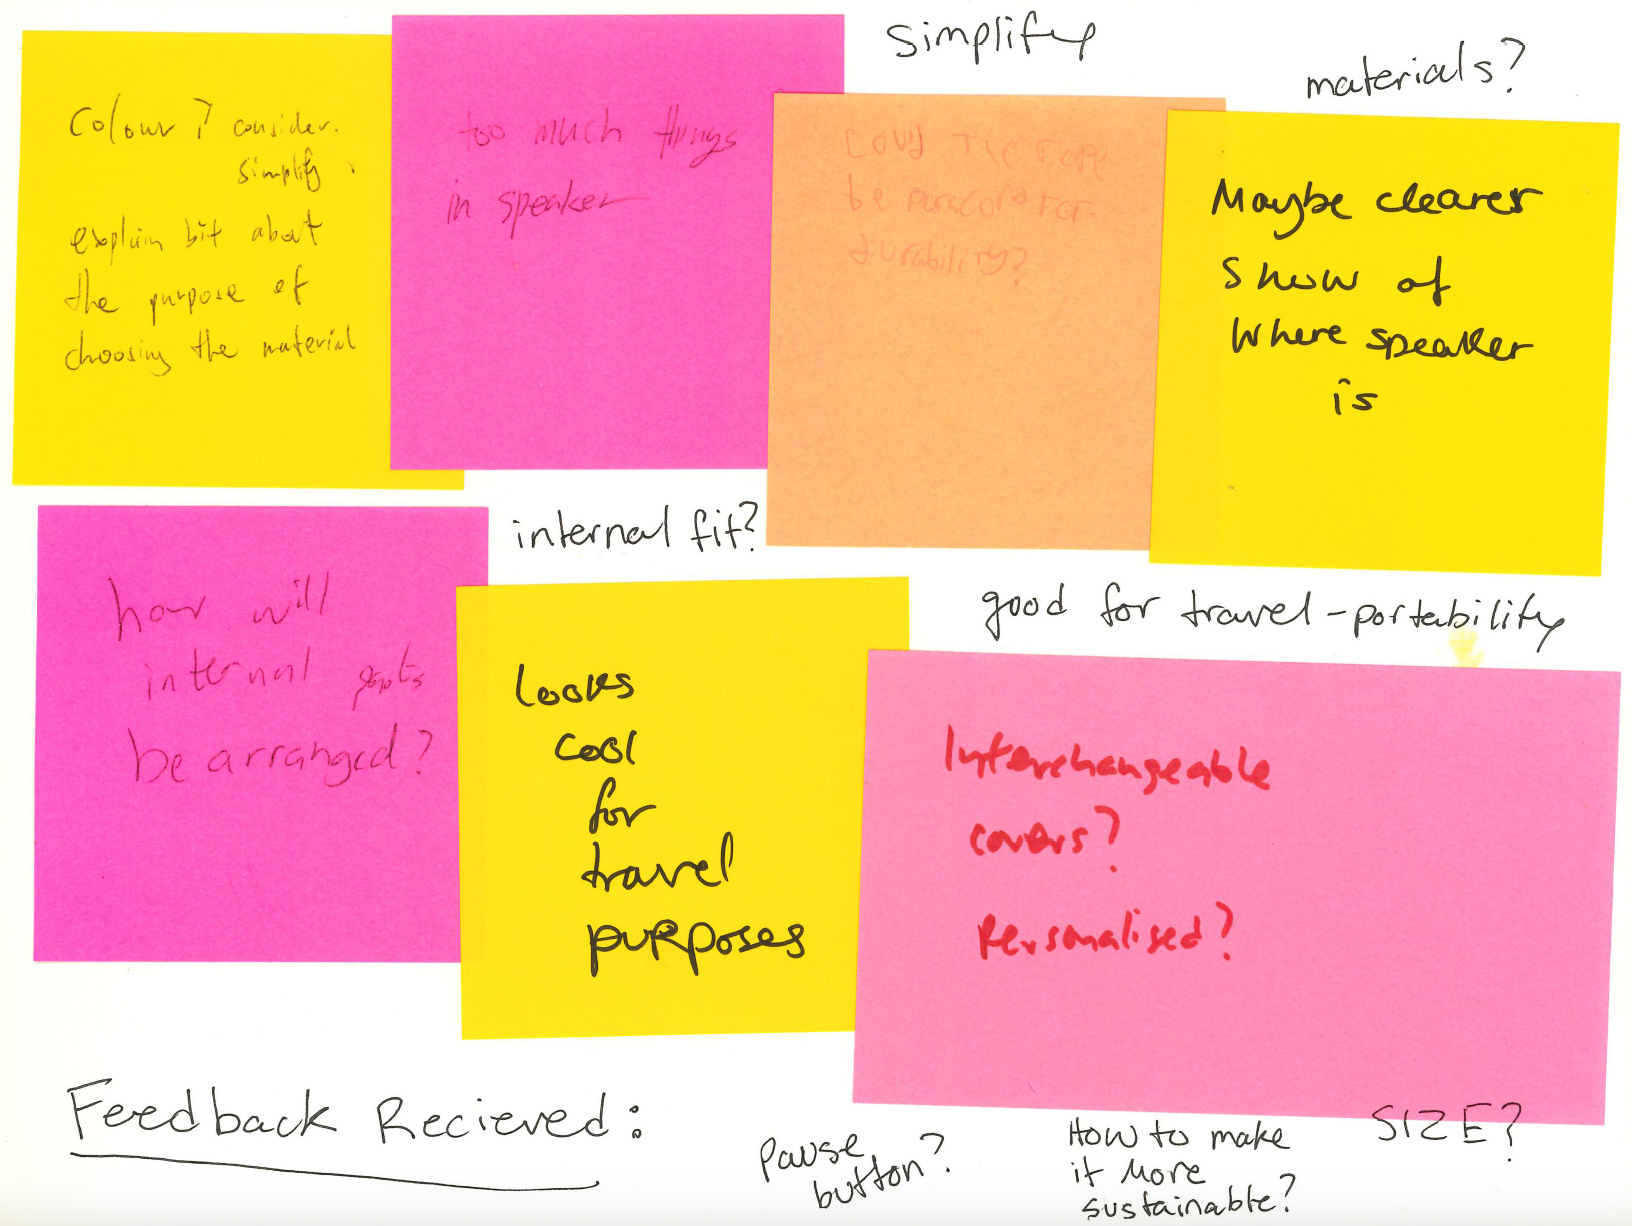 simplify
materials?
Colour? consider.
simplify.
explain bit about
the purpose of
choosing the material
too much things
in speaker
Could the rope
be paracord for
durability?
Maybe clearer
Show of
Where speaker
is
internal fit?
good for travel - portability
how will
internal parts
be arranged?
Looks
cool
for
travel
purposes
Interchangeable
covers?
Personalised?
Feedback Recieved:
Pause
button?
How to make
it more
sustainable?
SIZE?